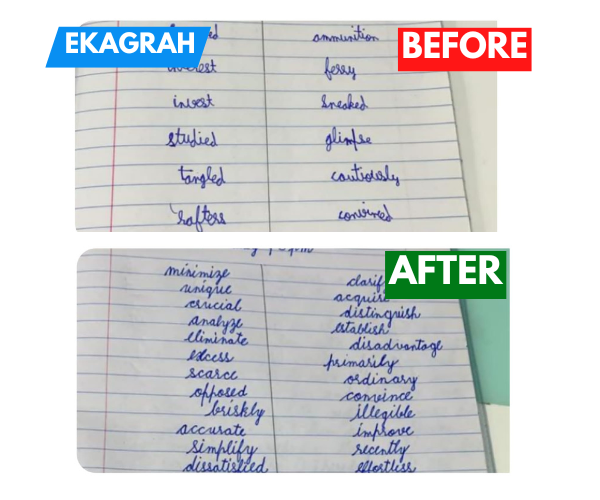 EKAGRAH
BEFORE
interest
invest
studied
tangled
rafters
ammunition
ferry
sneaked
glimpse
cautiously
convined
AFTER
minimize
unique
crucial
analyze
eliminate
excess
scarce
opposed
briskly
accurate
simplify
dissatisfied
clarif
acquire
distinguish
establish
disadvantage
primarily
ordinary
convince
illegible
improve
recently
effortless